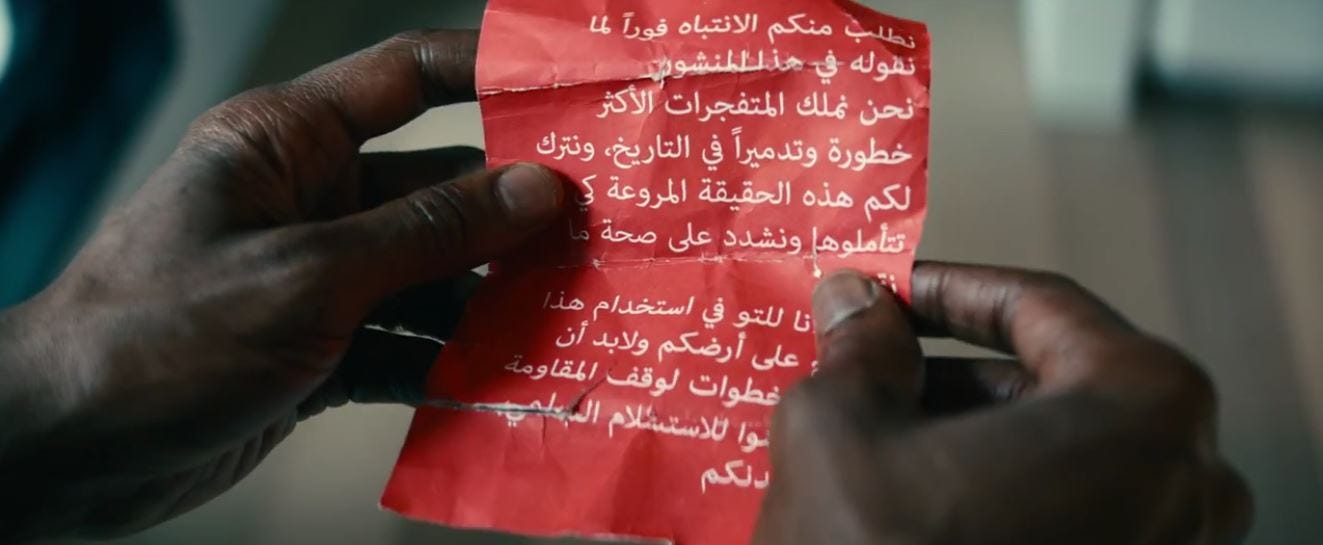 نطلب منكم الانتباه فوراً لما
نقوله في هذا المنشور
نحن نملك المتفجرات الأكثر
خطورة وتدميراً في التاريخ، ونترك
لكم هذه الحقيقة المروعة كي
تتأملوها ونشدد على صحة ما
نا للتو في استخدام هذا
على أرضكم ولابد أن
خطوات لوقف المقاومة
للاستسلام السلمي